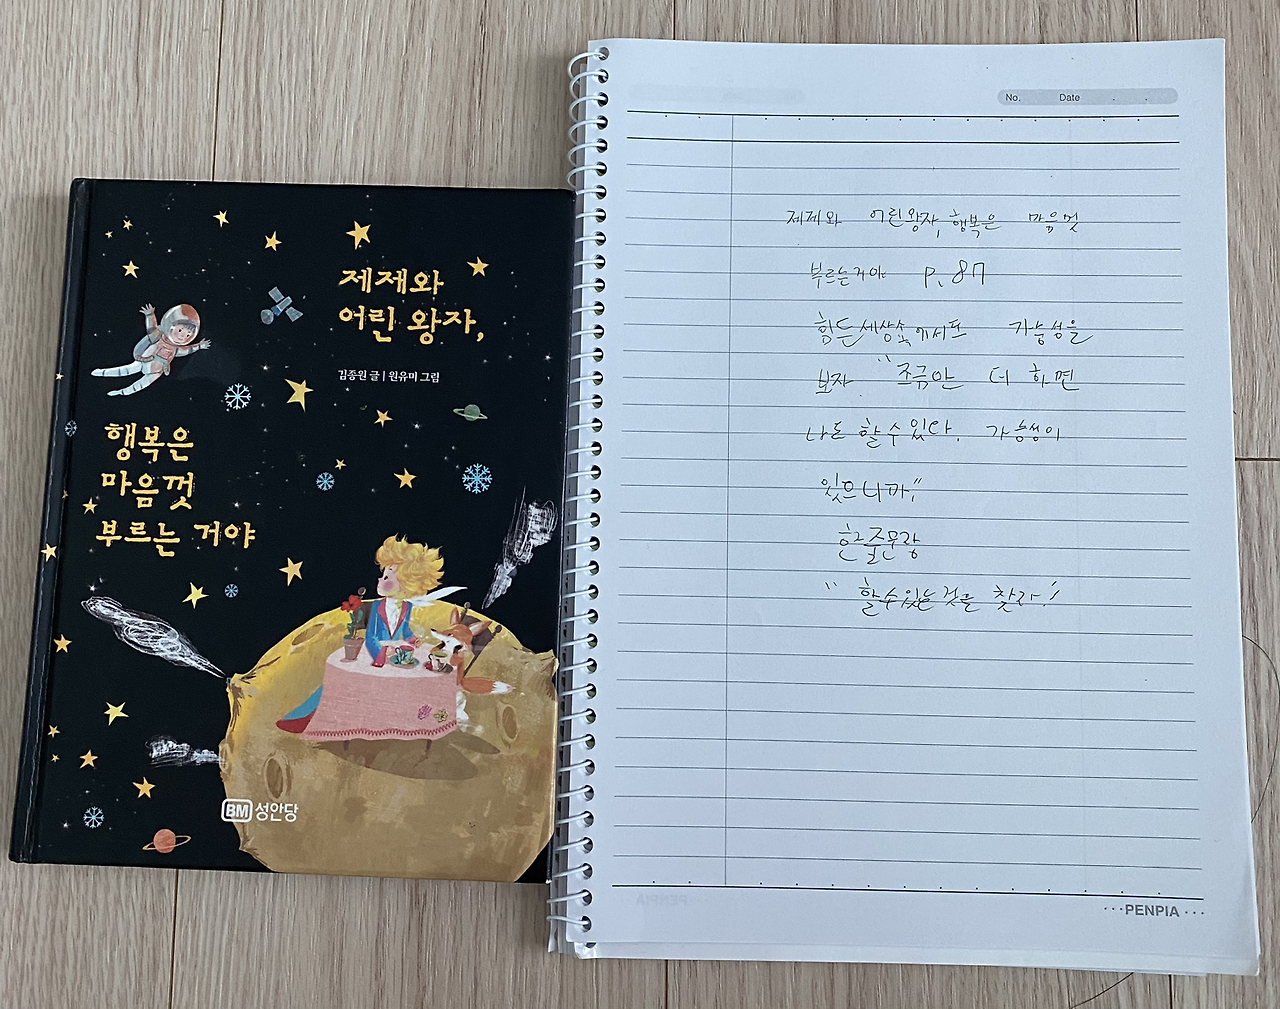 제제와
어린 왕자,
김종원 글 | 원유미 그림
행복은
마음껏
부르는 거야
BM 성안당
No. Date . .
제제와 어린왕자, 행복은 마음껏
부르는거야 P. 87
힘든세상속에서도 가능성을
보자. "조금만 더 하면
나도 할 수 있다. 가능성이
있으니까."
한줄문장
"할수있는 것을 찾자!"
···PENPIA···